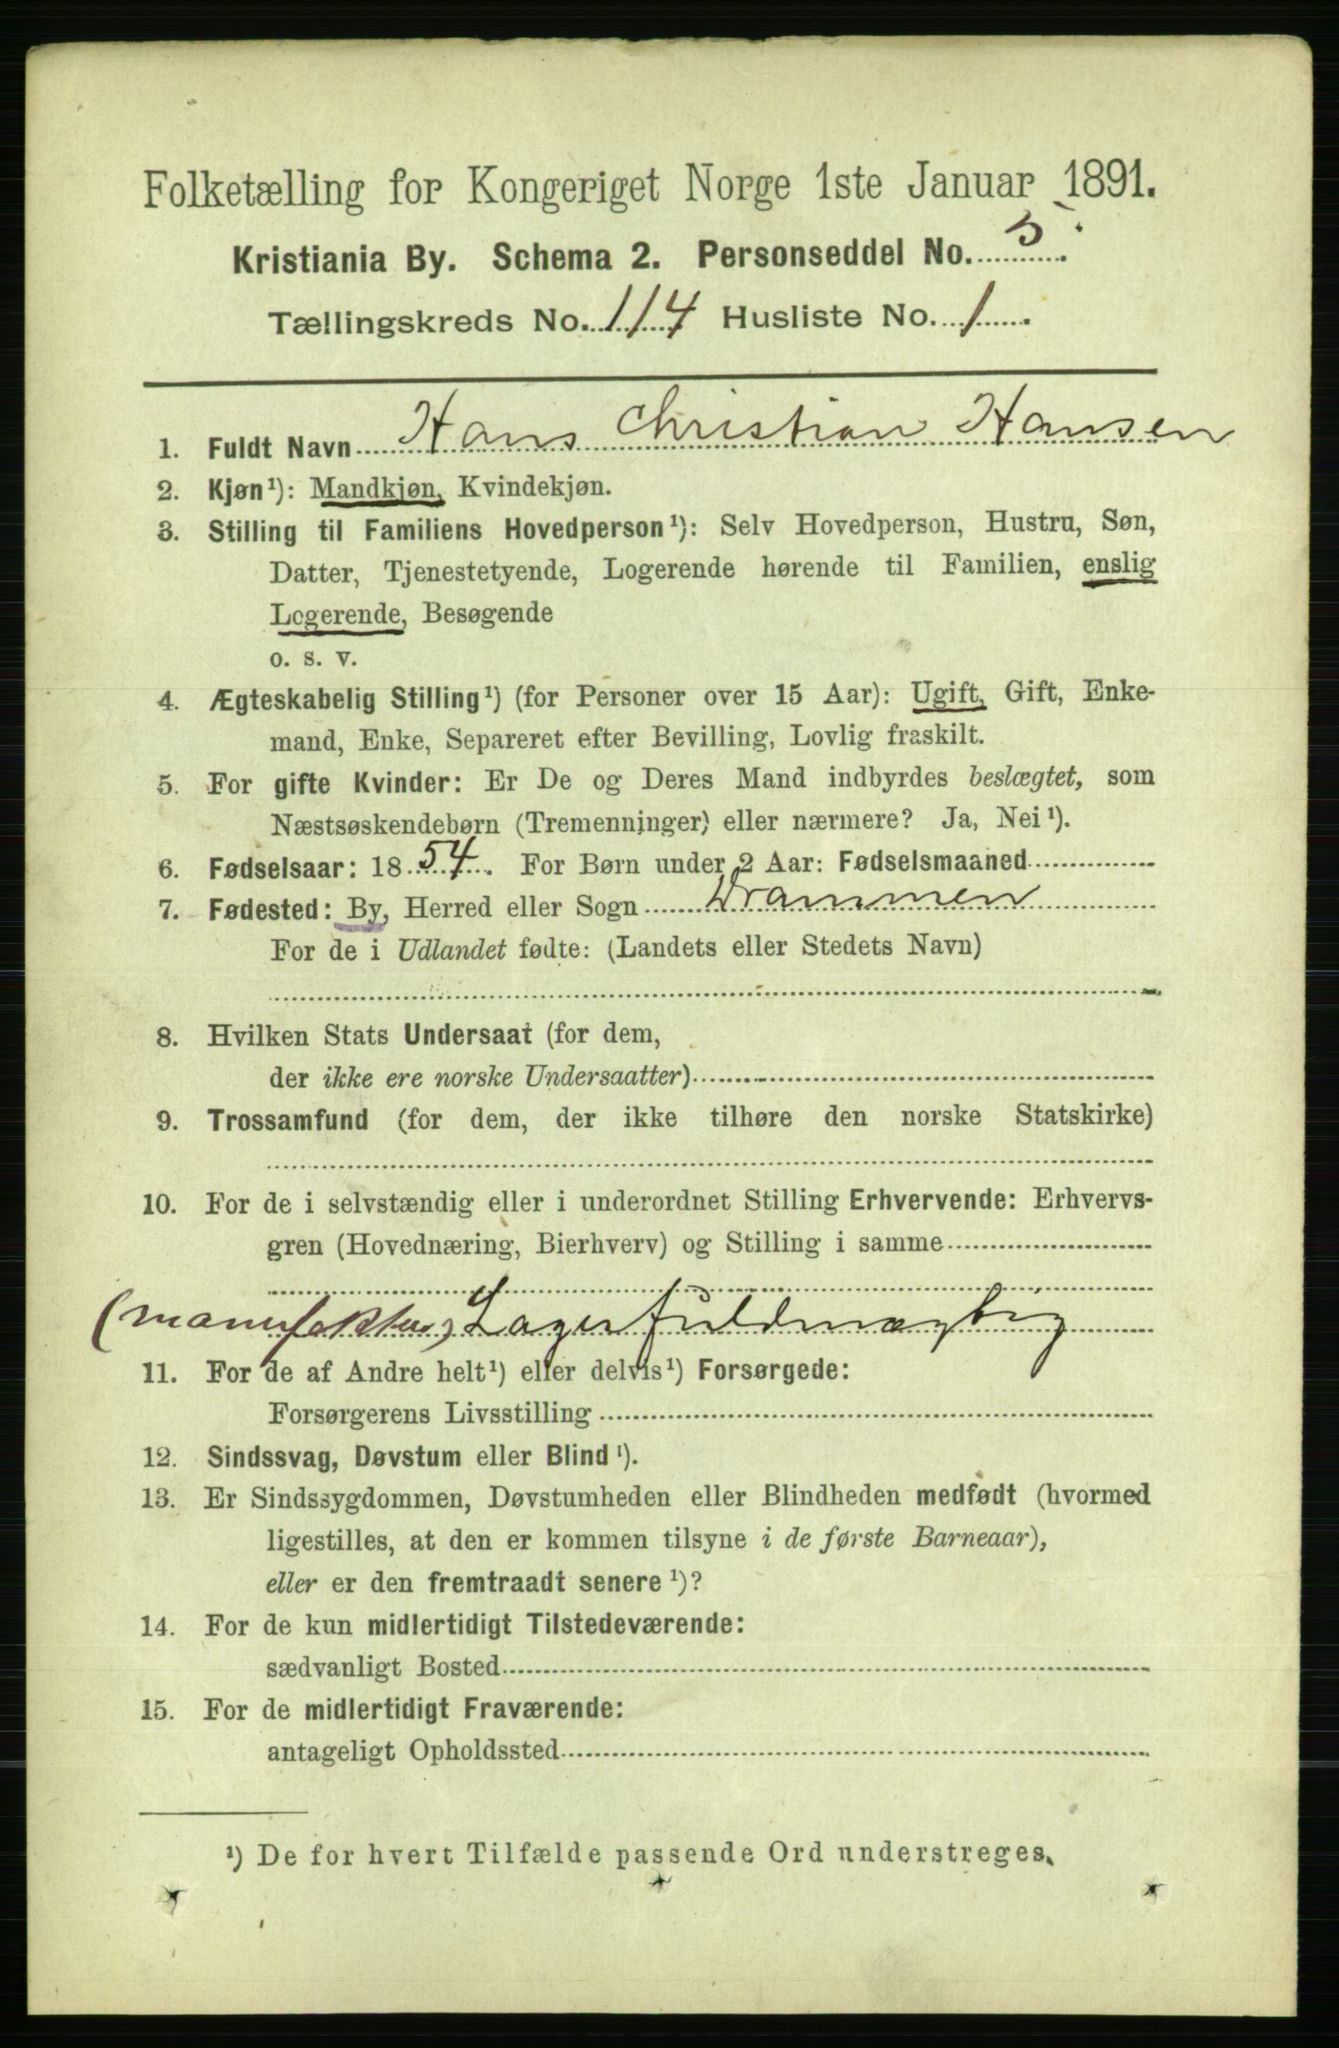 Folketælling for Kongeriget Norge 1ste Januar 1891.
Kristiania By. Schema 2. Personseddel No. 5.
Tællingskreds No. 114 Husliste No. 1
1. Fuldt Navn Hans Christian Hansen
2. Kjøn¹): Mandkjøn, Kvindekjøn.
3. Stilling til Familiens Hovedperson¹): Selv Hovedperson, Hustru, Søn,
Datter, Tjenestetyende, Logerende hørende til Familien, enslig
Logerende, Besøgende
o. s. v.
4. Ægteskabelig Stilling¹) (for Personer over 15 Aar): Ugift, Gift, Enke-
mand, Enke, Separeret efter Bevilling, Lovlig fraskilt.
5. For gifte Kvinder: Er De og Deres Mand indbyrdes beslægtet, som
Næstsøskendebørn (Tremenninger) eller nærmere? Ja, Nei¹).
6. Fødselsaar: 1854. For Børn under 2 Aar: Fødselsmaaned
7. Fødested: By, Herred eller Sogn Drammen
For de i Udlandet fødte: (Landets eller Stedets Navn)
8. Hvilken Stats Undersaat (for dem,
der ikke ere norske Undersaatter)
9. Trossamfund (for dem, der ikke tilhøre den norske Statskirke)
10. For de i selvstændig eller i underordnet Stilling Erhvervende: Erhvervs-
gren (Hovednæring, Bierhverv) og Stilling i samme
(manufaktur) Lagerfuldmægtig
11. For de af Andre helt¹) eller delvis¹) Forsørgede:
Forsørgerens Livsstilling
12. Sindssvag, Døvstum eller Blind¹).
13. Er Sindssygdommen, Døvstumheden eller Blindheden medfødt (hvormed
ligestilles, at den er kommen tilsyne i de første Barneaar),
eller er den fremtraadt senere¹)?
14. For de kun midlertidigt Tilstedeværende:
sædvanligt Bosted
15. For de midlertidigt Fraværende:
antageligt Opholdssted
¹) De for hvert Tilfælde passende Ord understreges.